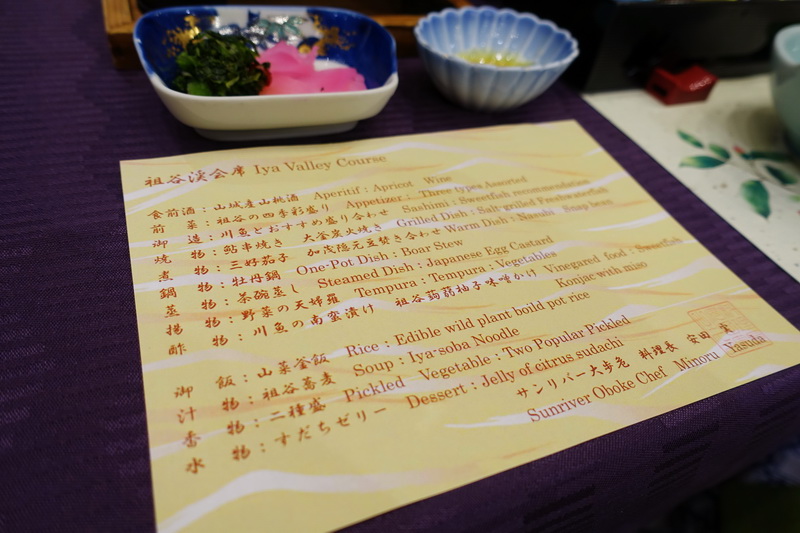 祖谷渓会席 Iya Valley Course
食前酒：山城産山桃酒 Aperitif : Apricot Wine
前 菜：祖谷の四季彩盛り Appetizer : Three types Assorted
御 造：川魚とおすすめ盛り合わせ Sashimi : Sweetfish recommendation
焼 物：鮎串焼き 大釜炭火焼き Grilled Dish : Salt-grilled Freshwaterfish
煮 物：三好茄子 加茂隠元豆焚き合わせ Warm Dish : Nasubi Snap bean
鍋 物：牡丹鍋 One-Pot Dish : Boar Stew
蒸 物：茶碗蒸し Steamed Dish : Japanese Egg Custard
揚 物：野菜の天婦羅 Tempura : Tempura : Vegetables
酢 物：川魚の南蛮漬け 祖谷蒟蒻柚子味噌かけ Vinegared food : Sweetfish
Konjac with miso
御 飯：山菜釜飯 Rice : Edible wild plant boild pot rice
汁 物：祖谷蕎麦 Soup : Iya-soba Noodle
香 物：二種盛 Pickled Vegetable : Two Popular Pickled
水 物：すだちゼリー Dessert : Jelly of citrus sudachi
サンリバー大歩危 料理長 安田 実
Sunriver Oboke Chef Minoru Yasuda